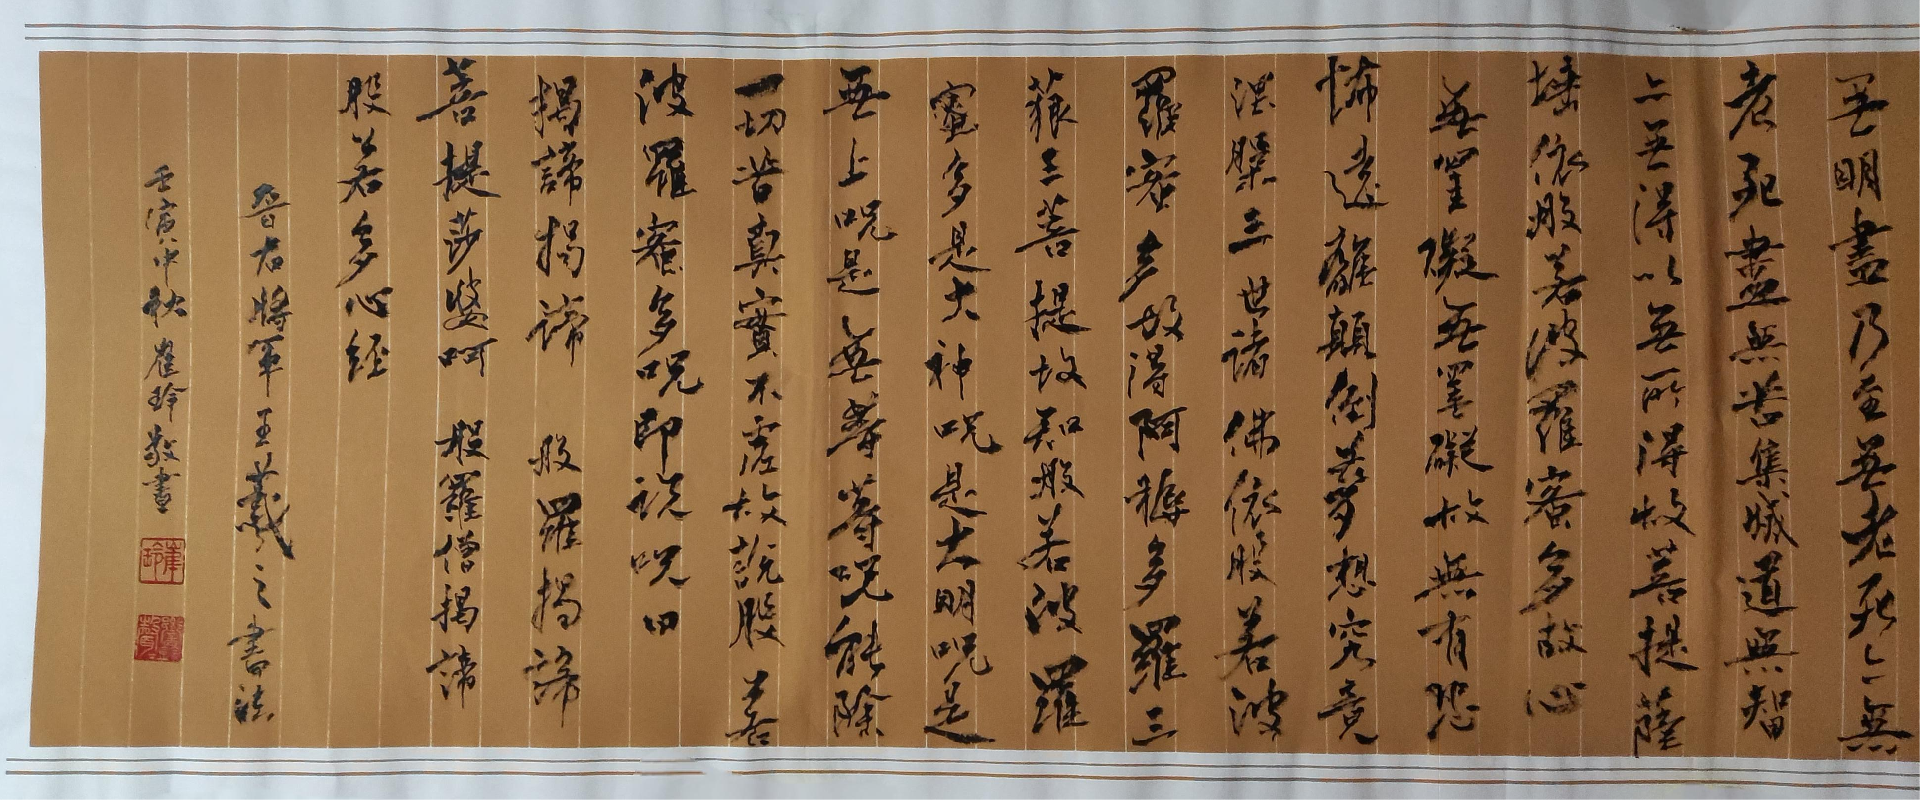 無明盡乃至無老死亦無
老死盡無苦集滅道無智
亦無得以無所得故菩提薩
埵依般若波羅蜜多故心
無罣礙無罣礙故無有恐
怖遠離顛倒夢想究竟
涅槃三世諸佛依般若波
羅蜜多故得阿耨多羅三
藐三菩提故知般若波羅
蜜多是大神呪是大明呪是
無上呪是無等等呪能除
一切苦真實不虛故說般若
波羅蜜多呪即說呪曰
揭諦揭諦 般羅揭諦
菩提莎婆呵 般羅僧揭諦
般若多心經
晉右將軍王羲之書法
壬寅中秋崔玲敬書
崔玲